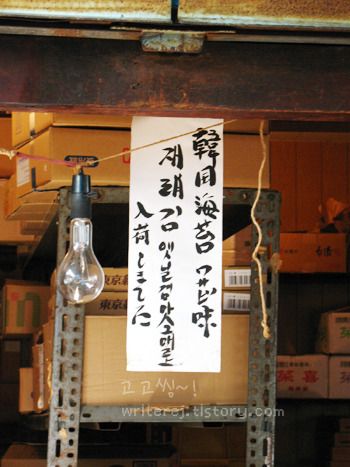 韓国海苔 ワサビ味
재래김 옛날
入荷しました
東京
고고씽~!
writerej.tistory.com